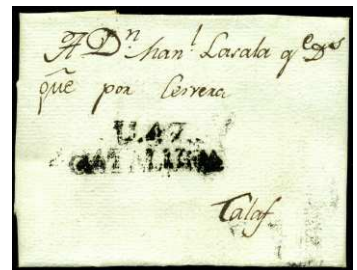 A Dn. Manl. Lasala q
que por Cervera
U.47.
CATALUÑA
Calaf